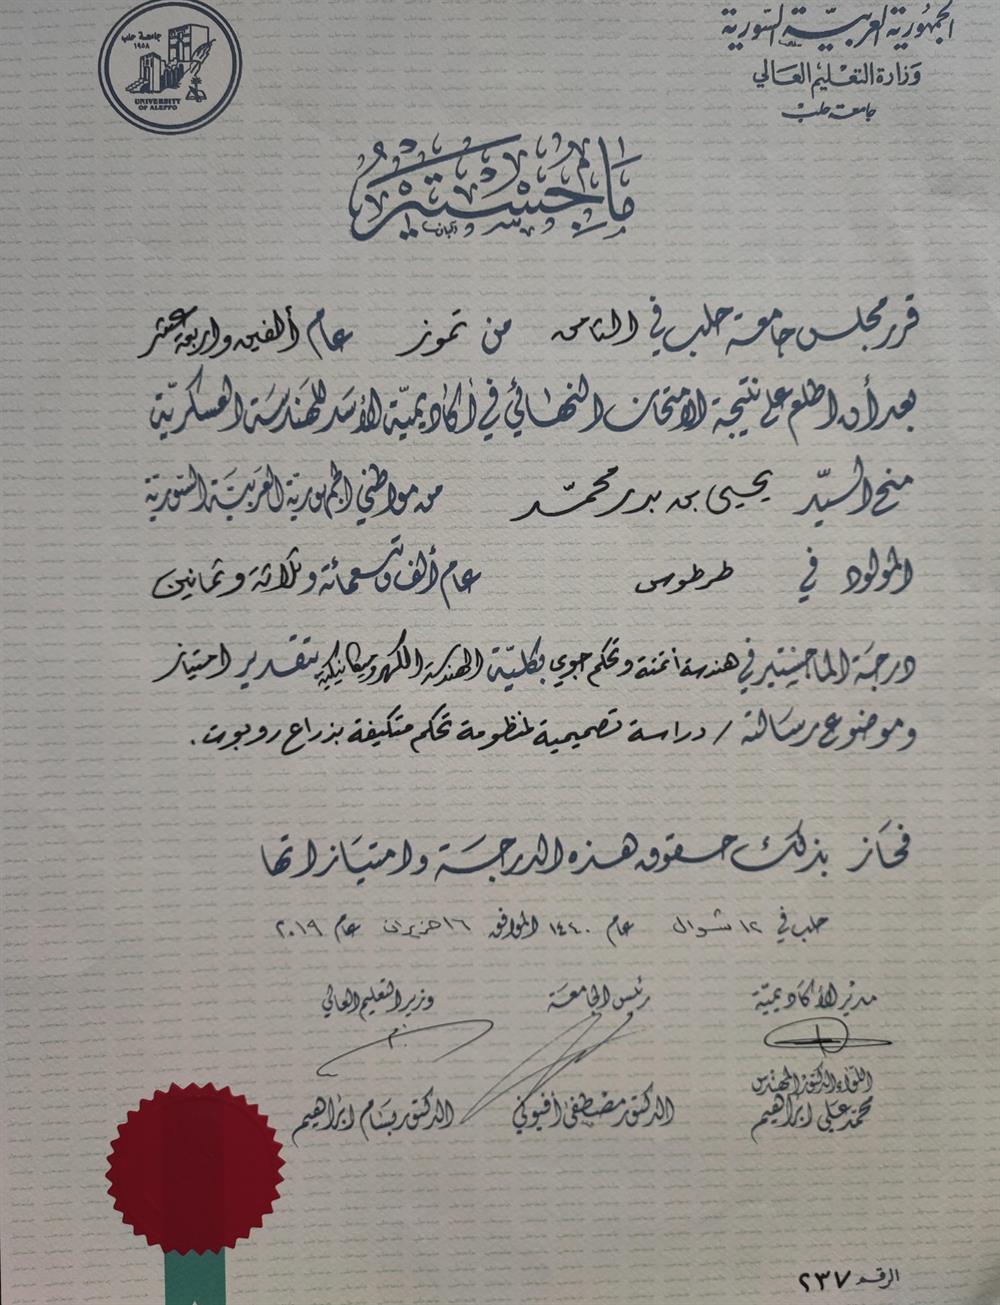 الجمهورية العربية السورية
وزارة التعليم العالي
جامعة حلب
جامعة حلب
١٩٥٨
UNIVERSITY
OF ALEPPO
ماجستير
قرر مجلس جامعة حلب في الثامن من تموز عام ألفين واربعة عشر
بعد أن اطلع على نتيجة الامتحان النهائي في أكاديمية الأسد للهندسة العسكرية
منح السيد يحيى بن بدر محمد من مواطني الجمهورية العربية السورية
المولود في طرطوس عام ألف وتسعمائة وثلاثة وثمانين
درجة الماجستير في هندسة أتمتة وتحكم جوي بكلية الهندسة الكهروميكانيكية بتقدير امتياز
وموضوع رسالته / دراسة تصميمية لمنظومة تحكم متكيفة بذراع روبوت .
فحاز بذلك حقوق هذه الدرجة وامتيازاتها
حلب في ١٢ شوال عام ١٤٤٠ الموافق ١٦ حزيران عام ٢٠١٩
مدير الأكاديمية رئيس الجامعة وزير التعليم العالي
اللواء الدكتور المهندس
محمد علي ابراهيم الدكتور مصطفى أفيوني الدكتور بسام ابراهيم
الرقم ٢٣٧